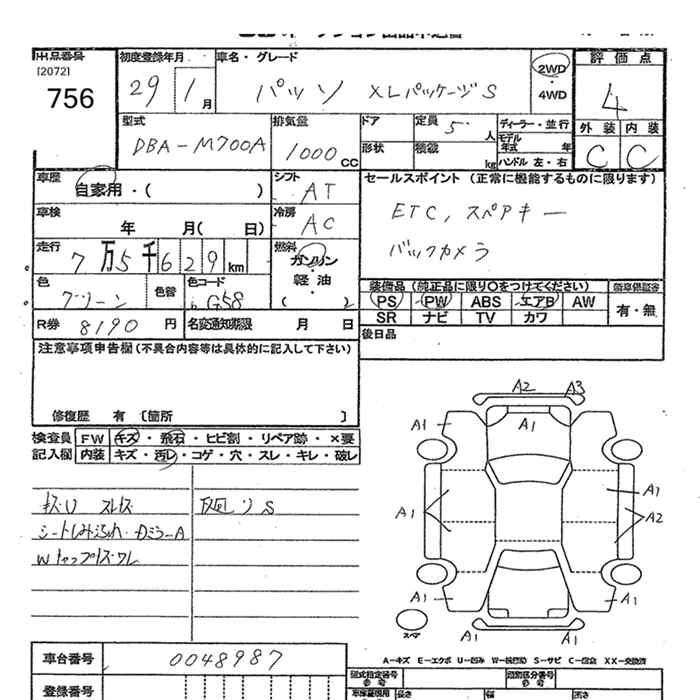 出品番号
[2072]
756
初度登録年月
29 1月
車名・グレード
パッソ XLパッケージS
2WD
・
4WD
評価点
4
外装 内装
C C
型式
DBA-M700A
排気量
1000cc
ドア
形状
定員 5人
積載 kg
ディーラー・並行
モデル
年式 年
ハンドル 左・右
車歴
自家用・( )
シフト
AT
セールスポイント (正常に機能するものに限ります)
ETC, スペアキー
バックカメラ
車検
年 月( 日)
冷房
AC
走行
7万5千629km
燃料
ガソリン
・
軽油
( )
色
グリーン
色替
色コード
G58
装備品 (純正品に限り○をつけてください)
PS PW ABS エアB AW
SR ナビ TV カワ
新車保証書
有・無
R券 8190円
名変通知期限 月 日
後日品
注意事項申告欄(不具合内容等は具体的に記入して下さい)
修復歴 有 [箇所 ]
検査員
記入欄
FW キズ・飛石・ヒビ割・リペア跡・×要
内装 キズ・汚レ・コゲ・穴・スレ・キレ・破レ
A2 A3
A1 A1 A1
A1 A1
A2
A1 A1
A1 A1
スペア
A-キズ E-エクボ U-凹み W-板金跡 S-サビ C-腐食 XX-交換済
車台番号 0048987
登録番号
型式指定番号
類別区分番号
長さ 幅 高さ